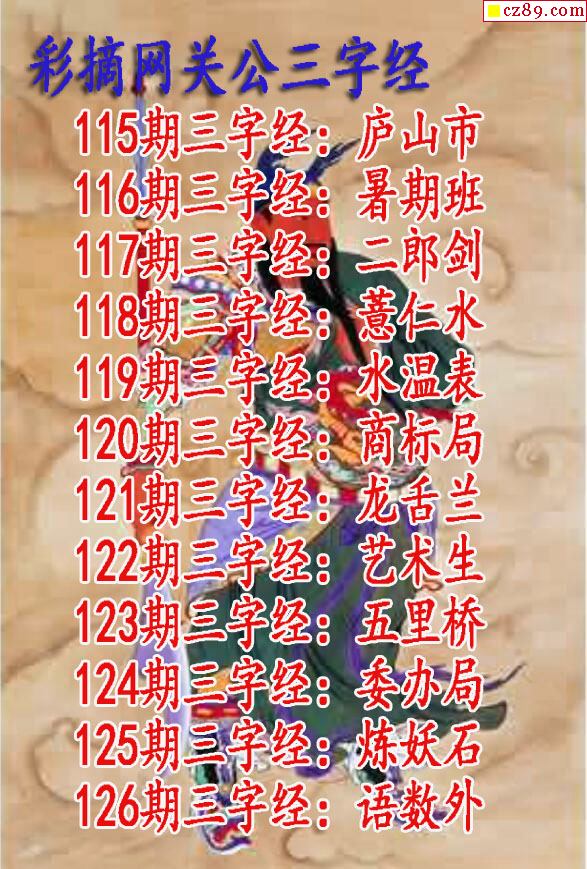 cz89.com
彩摘网关公三字经
115期三字经：庐山市
116期三字经：暑期班
117期三字经：二郎剑
118期三字经：薏仁水
119期三字经：水温表
120期三字经：商标局
121期三字经：龙舌兰
122期三字经：艺术生
123期三字经：五里桥
124期三字经：委办局
125期三字经：炼妖石
126期三字经：语数外